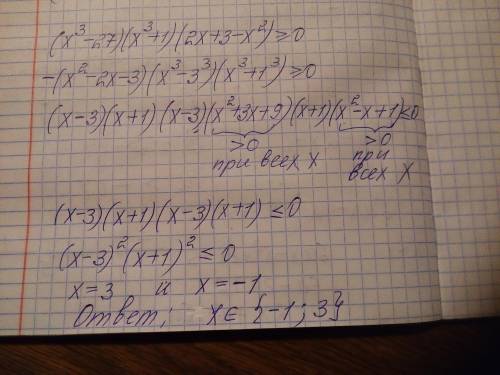 (x³-27)(x³+1)(2x+3-x²)≥0
-(x²-2x-3)(x³-3³)(x³+1³)≥0
(x-3)(x+1)(x-3)(x²+3x+9)(x+1)(x²-x+1)≤0
>0 >0
при всех x при всех x
(x-3)(x+1)(x-3)(x+1)≤0
(x-3)²(x+1)²≤0
x=3 и x=-1
Ответ: x∈{-1;3}